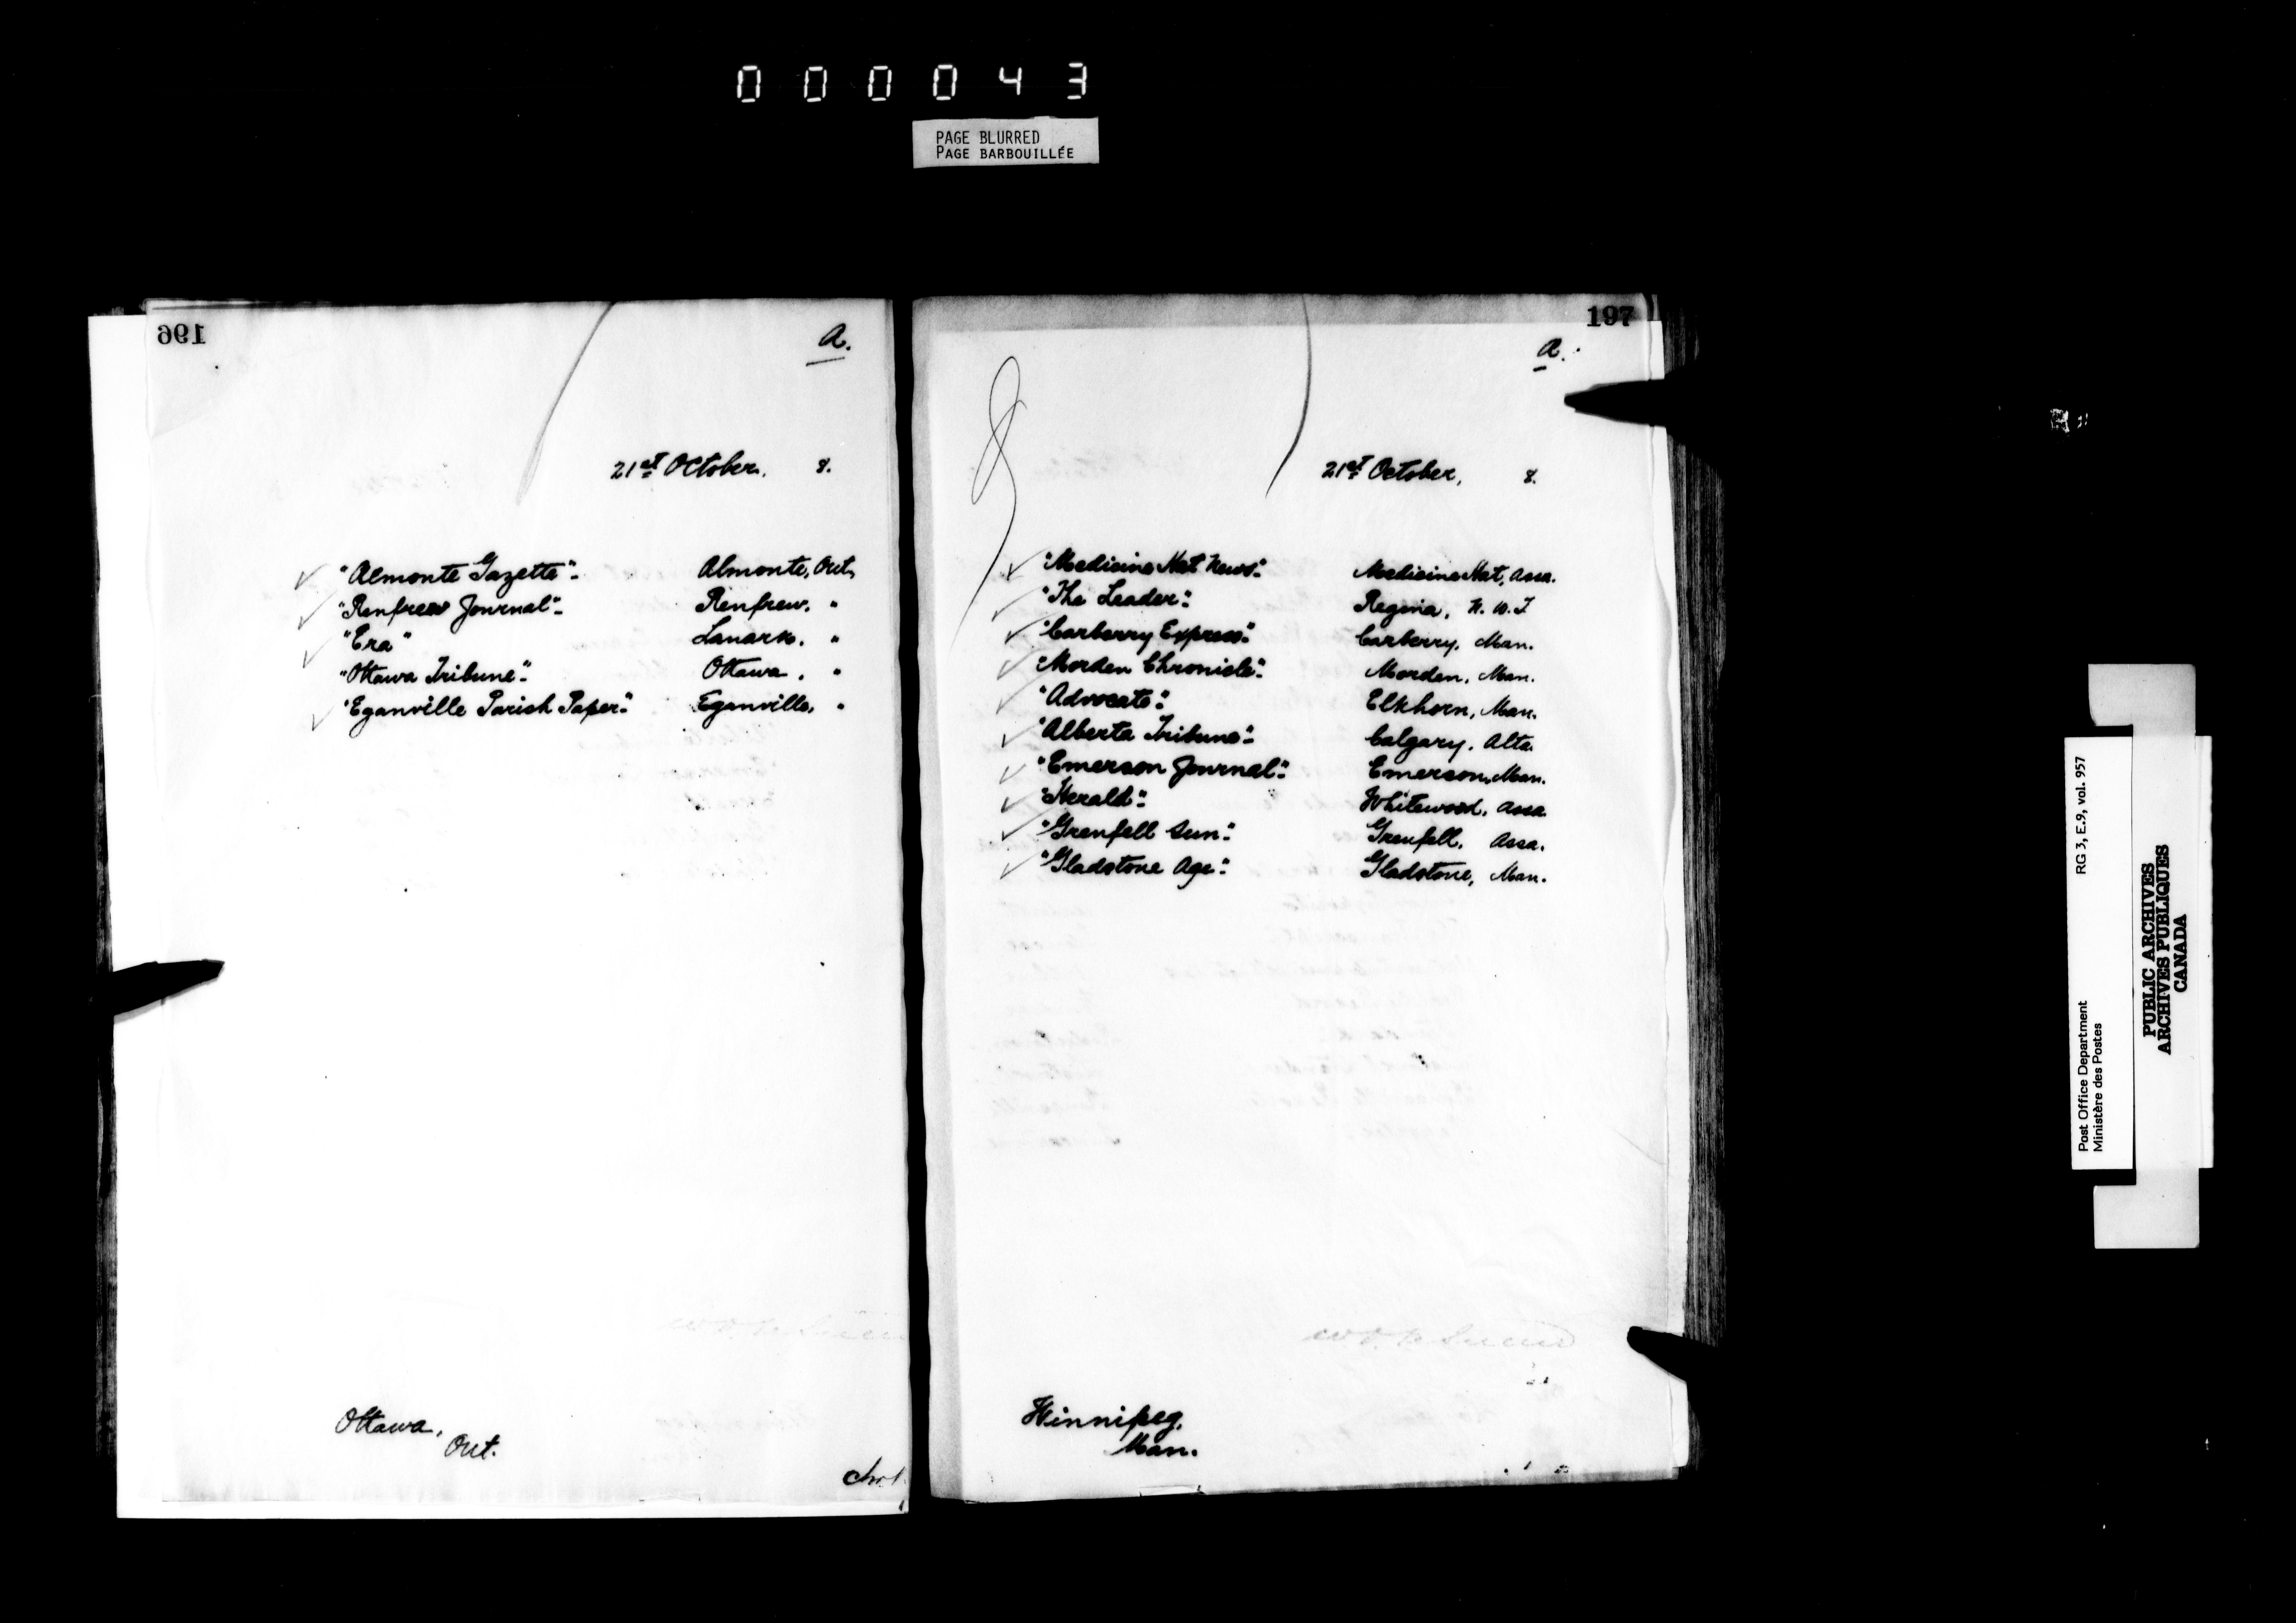 000043
PAGE BLURRED
PAGE BARBOUILLÉE
196
A.
21st October, 8.
"Almonte Gazette". Almonte, Ont,
"Renfrew Journal". Renfrew, "
"Era" Lanark, "
"Ottawa Tribune". Ottawa, "
"Eganville Parish Paper". Eganville, "
Ottawa,
Ont.
197
A.
21st October, 8.
"Medicine Hat News". Medicine Hat, Assa.
"The Leader". Regina, N.W.T
"Carberry Express". Carberry, Man.
"Morden Chronicle". Morden, Man.
"Advocate". Elkhorn, Man.
"Alberta Tribune". Calgary, Alta.
"Emerson Journal". Emerson, Man.
"Herald". Whitewood, Assa.
"Grenfell Sun". Grenfell, Assa.
"Gladstone Age". Gladstone, Man.
Winnipeg,
Man.
Post Office Department RG 3, E.9, vol. 957
Ministère des Postes
PUBLIC ARCHIVES
ARCHIVES PUBLIQUES
CANADA